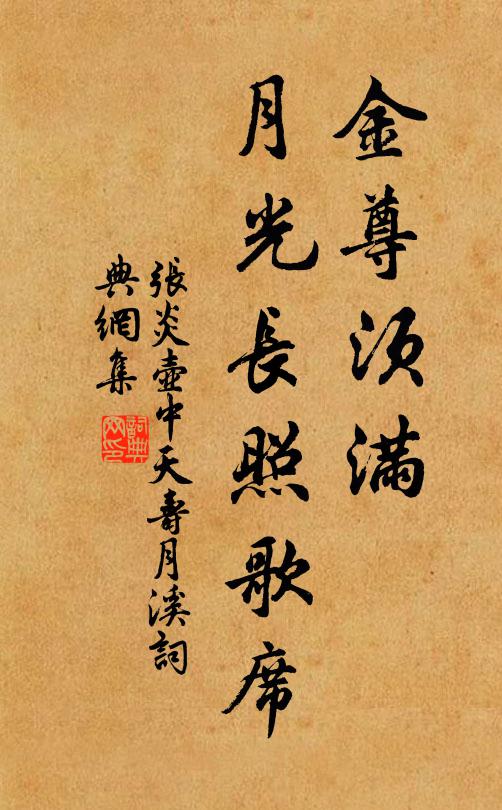 金尊須滿
月光長照歌席
張炎壺中天壽月溪詞
典網集
詞典
网印